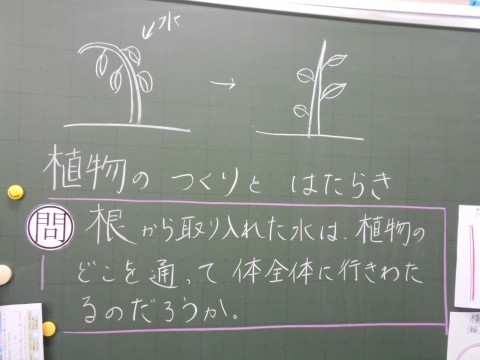 水
植物の つくりと はたらき
問 根から取り入れた水は、植物の
どこを通って体全体に行きわた
るのだろうか。